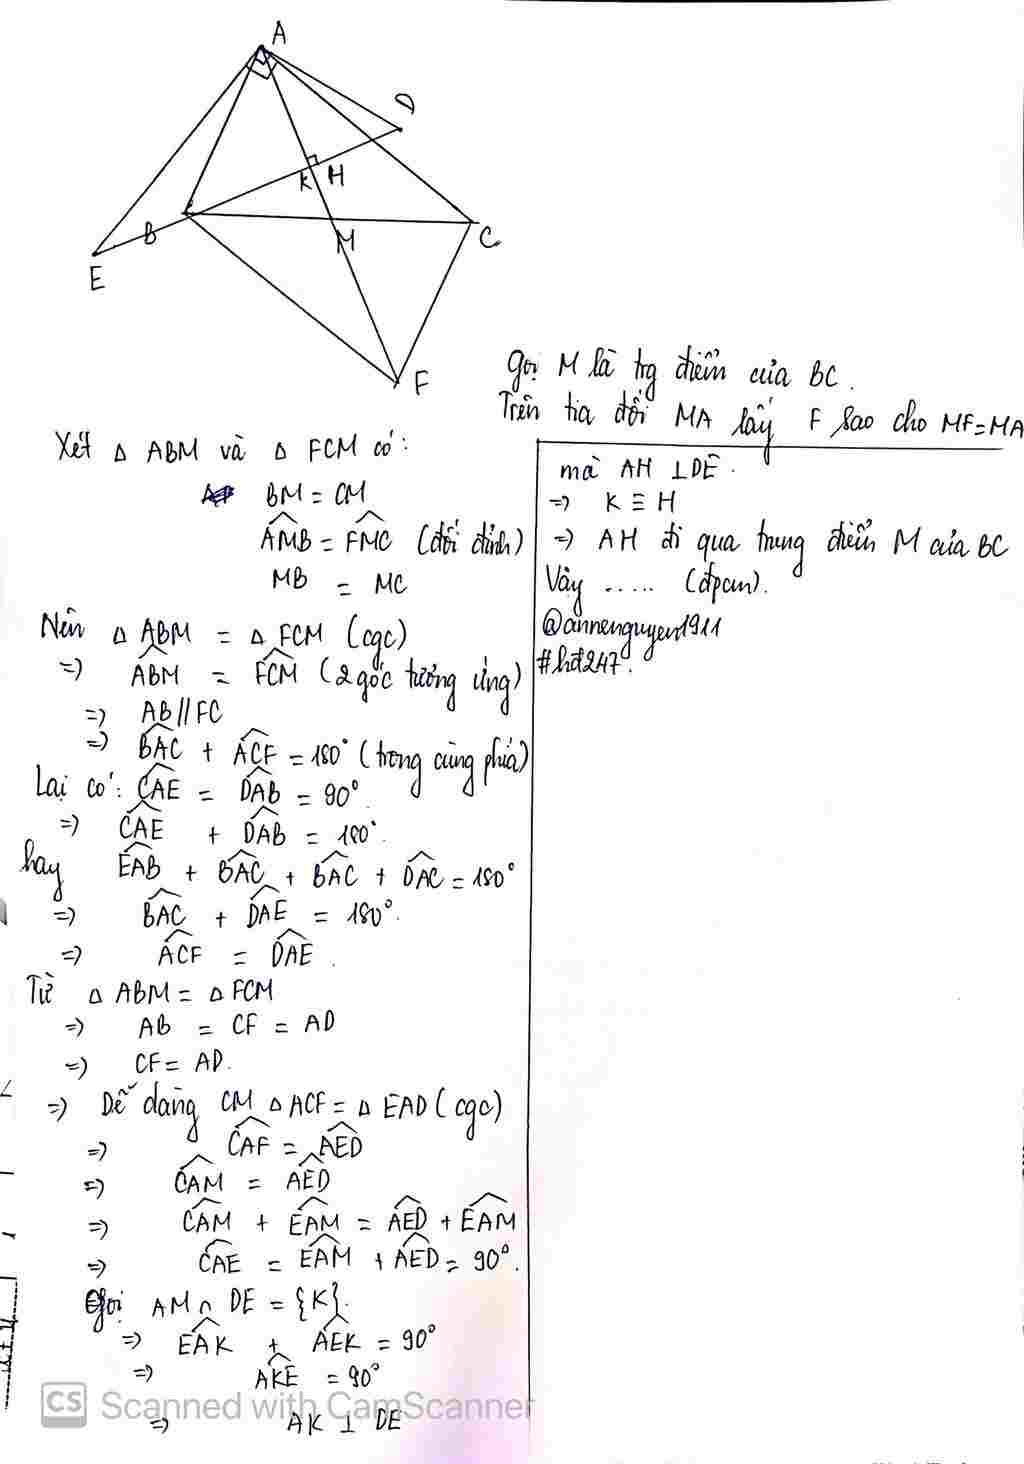 A
D
K H
B
M
C
E
F
Gọi M là trg điểm của BC.
Trên tia đối MA lấy F sao cho MF=MA
Xét △ ABM và △ FCM có:
BM = CM
\widehat{AMB} = \widehat{FMC} (đối đỉnh)
MB = MC
Nên △ ABM = △ FCM (cgc)
=> \widehat{ABM} = \widehat{FCM} (2 góc tương ứng)
=> AB // FC
=> \widehat{BAC} + \widehat{ACF} = 180° (trong cùng phía)
Lại có: \widehat{CAE} = \widehat{DAB} = 90°.
=> \widehat{CAE} + \widehat{DAB} = 180°.
hay \widehat{EAB} + \widehat{BAC} + \widehat{BAC} + \widehat{DAC} = 180°
=> \widehat{BAC} + \widehat{DAE} = 180°.
=> \widehat{ACF} = \widehat{DAE}.
Từ △ ABM = △ FCM
=> AB = CF = AD
=> CF = AD.
=> Dễ dàng CM △ ACF = △ EAD (cgc)
=> \widehat{CAF} = \widehat{AED}
=> \widehat{CAM} = \widehat{AED}
=> \widehat{CAM} + \widehat{EAM} = \widehat{AED} + \widehat{EAM}
=> \widehat{CAE} = \widehat{EAM} + \widehat{AED} = 90°.
Gọi AM ∩ DE = {K}.
=> \widehat{EAK} + \widehat{AEK} = 90°
=> \widehat{AKE} = 90°
=> AK ⊥ DE
mà AH ⊥ DE.
=> K ≡ H
=> AH đi qua trung điểm M của BC
Vậy ..... (đpcm).
@annenguyen1911
#hđ247.
CS Scanned with CamScanner